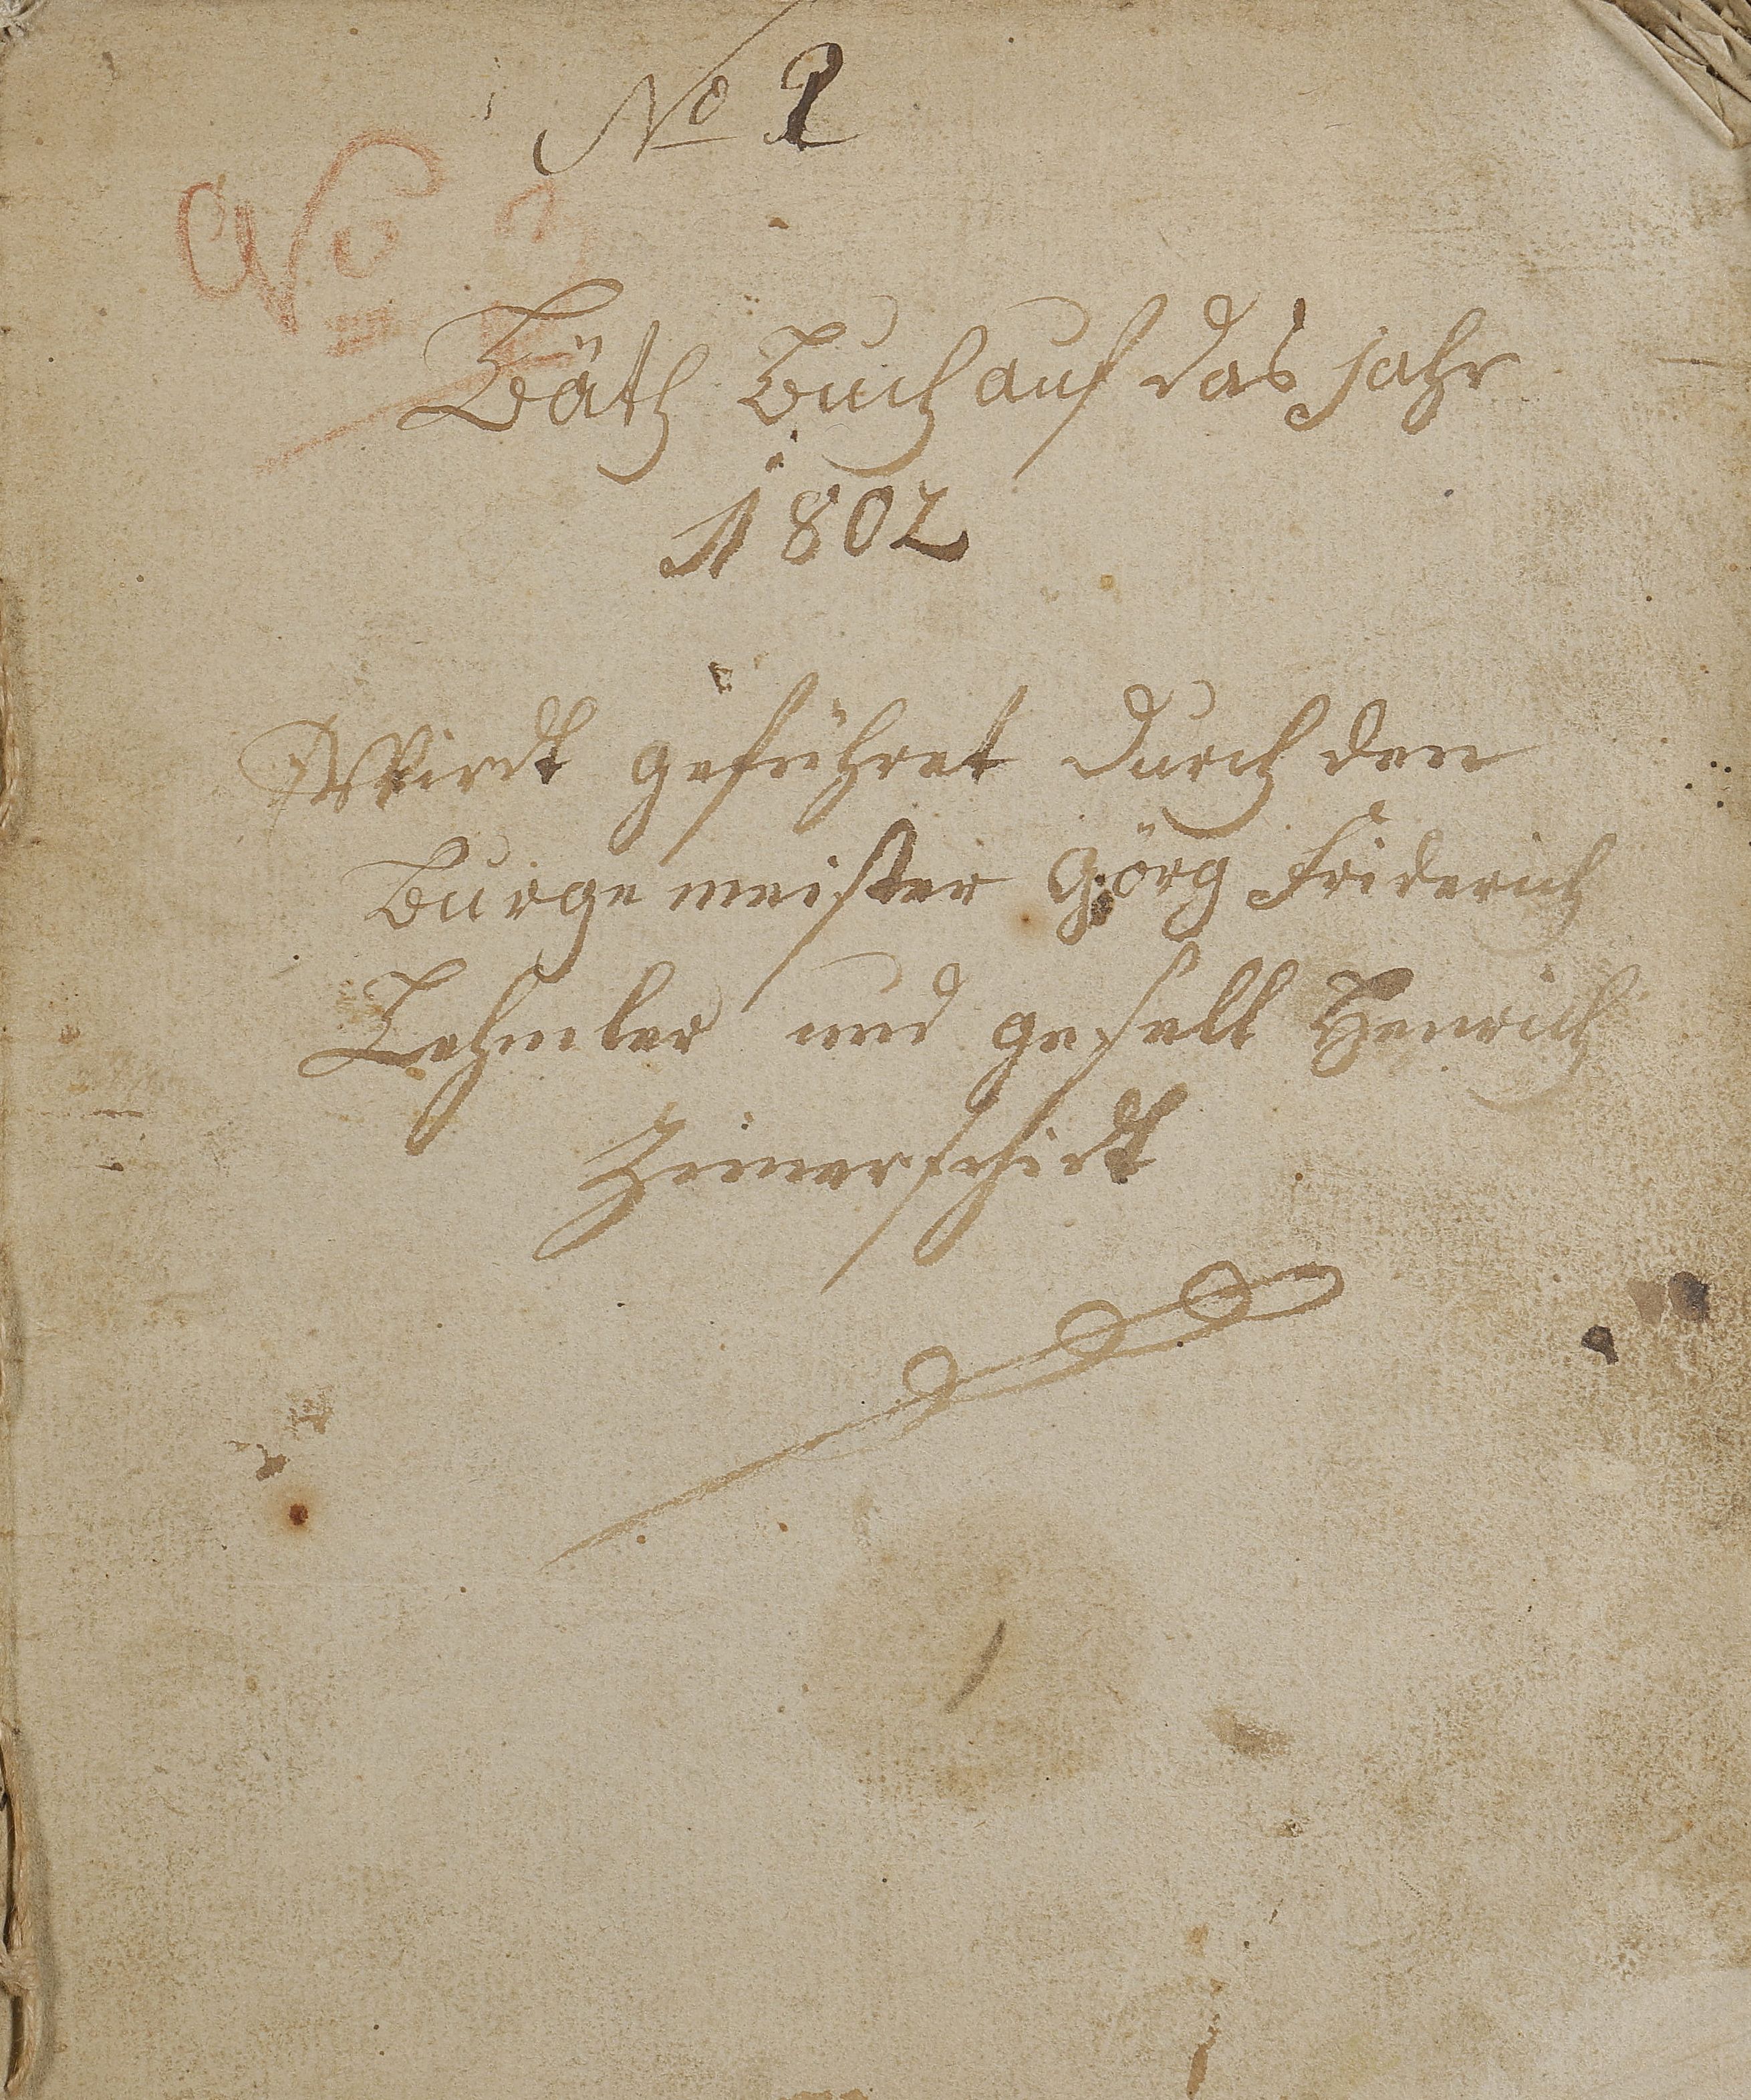 No 2
No 3
Bäth Buch auf das jahr
1802
Wirdt geführet durch den
Burgemeister Görg Friderich
Lehmler und geselt Henrich
Zeimerschidt